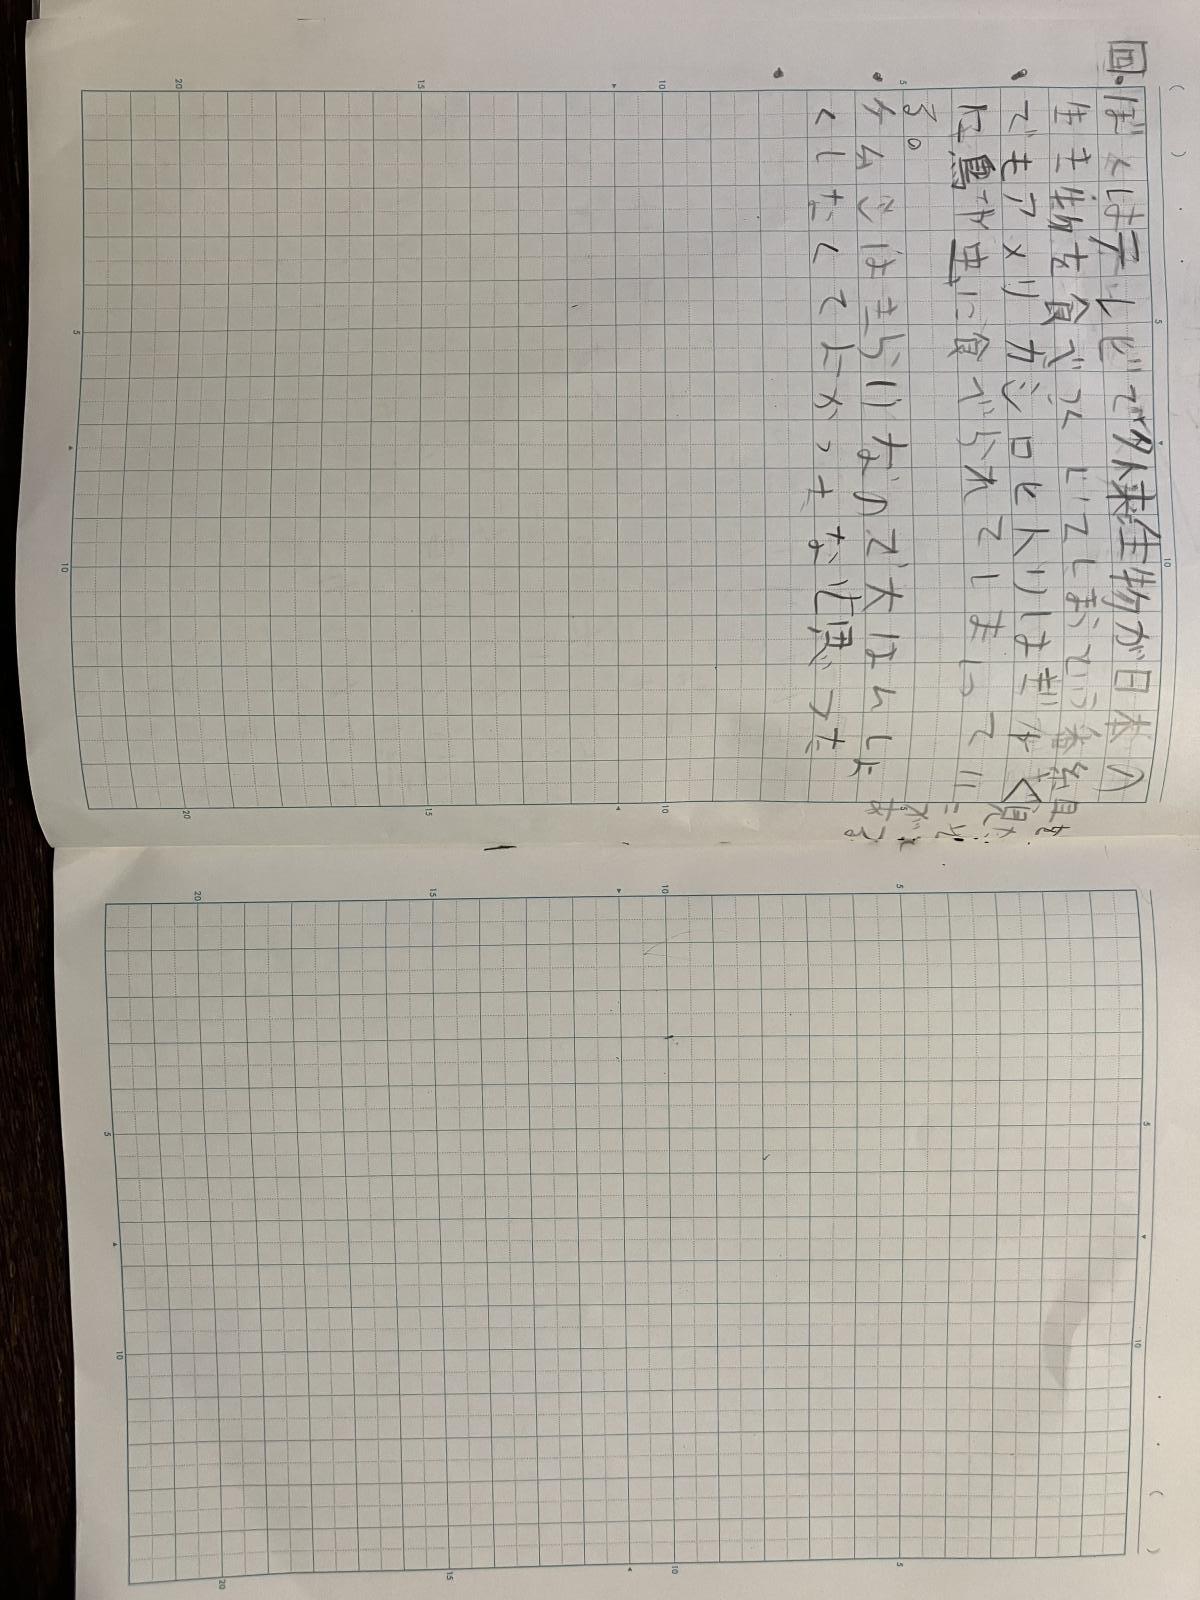 四.ぼくはテレビで外来生物が日本の
生き物を食べて てしまという番組を
見たことがある
でもアメリカシロヒトリはぎゃく
に鳥や虫に食べられてしまってい
る。
ケムシはきらいなので大はんしょ
くしなくてよかったなと思った